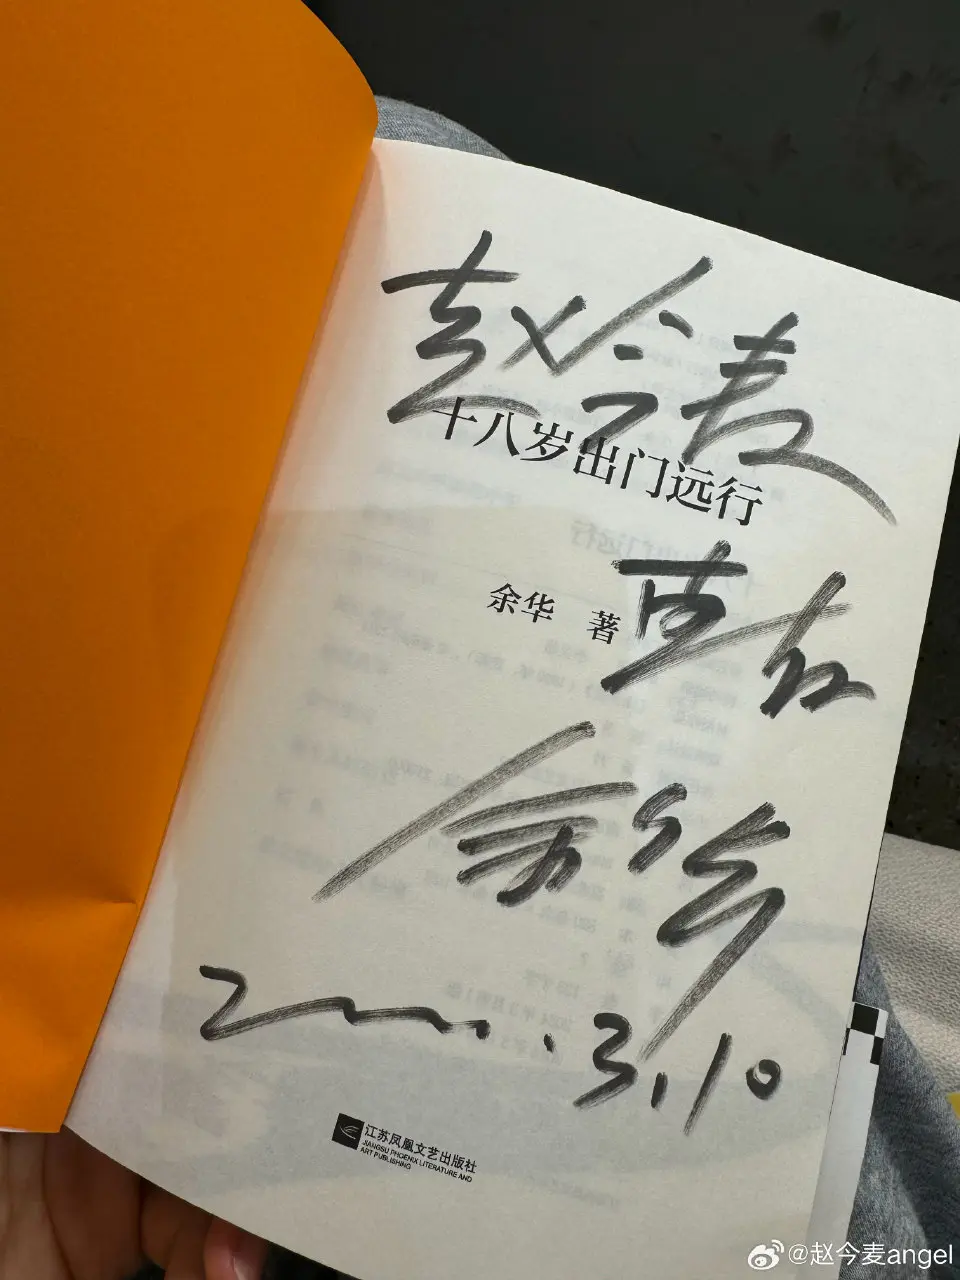 赵今麦
十八岁出门远行
余华 著
指正
余华
3.10
江苏凤凰文艺出版社
JIANGSU PHOENIX LITERATURE AND
ART PUBLISHING
@赵今麦angel